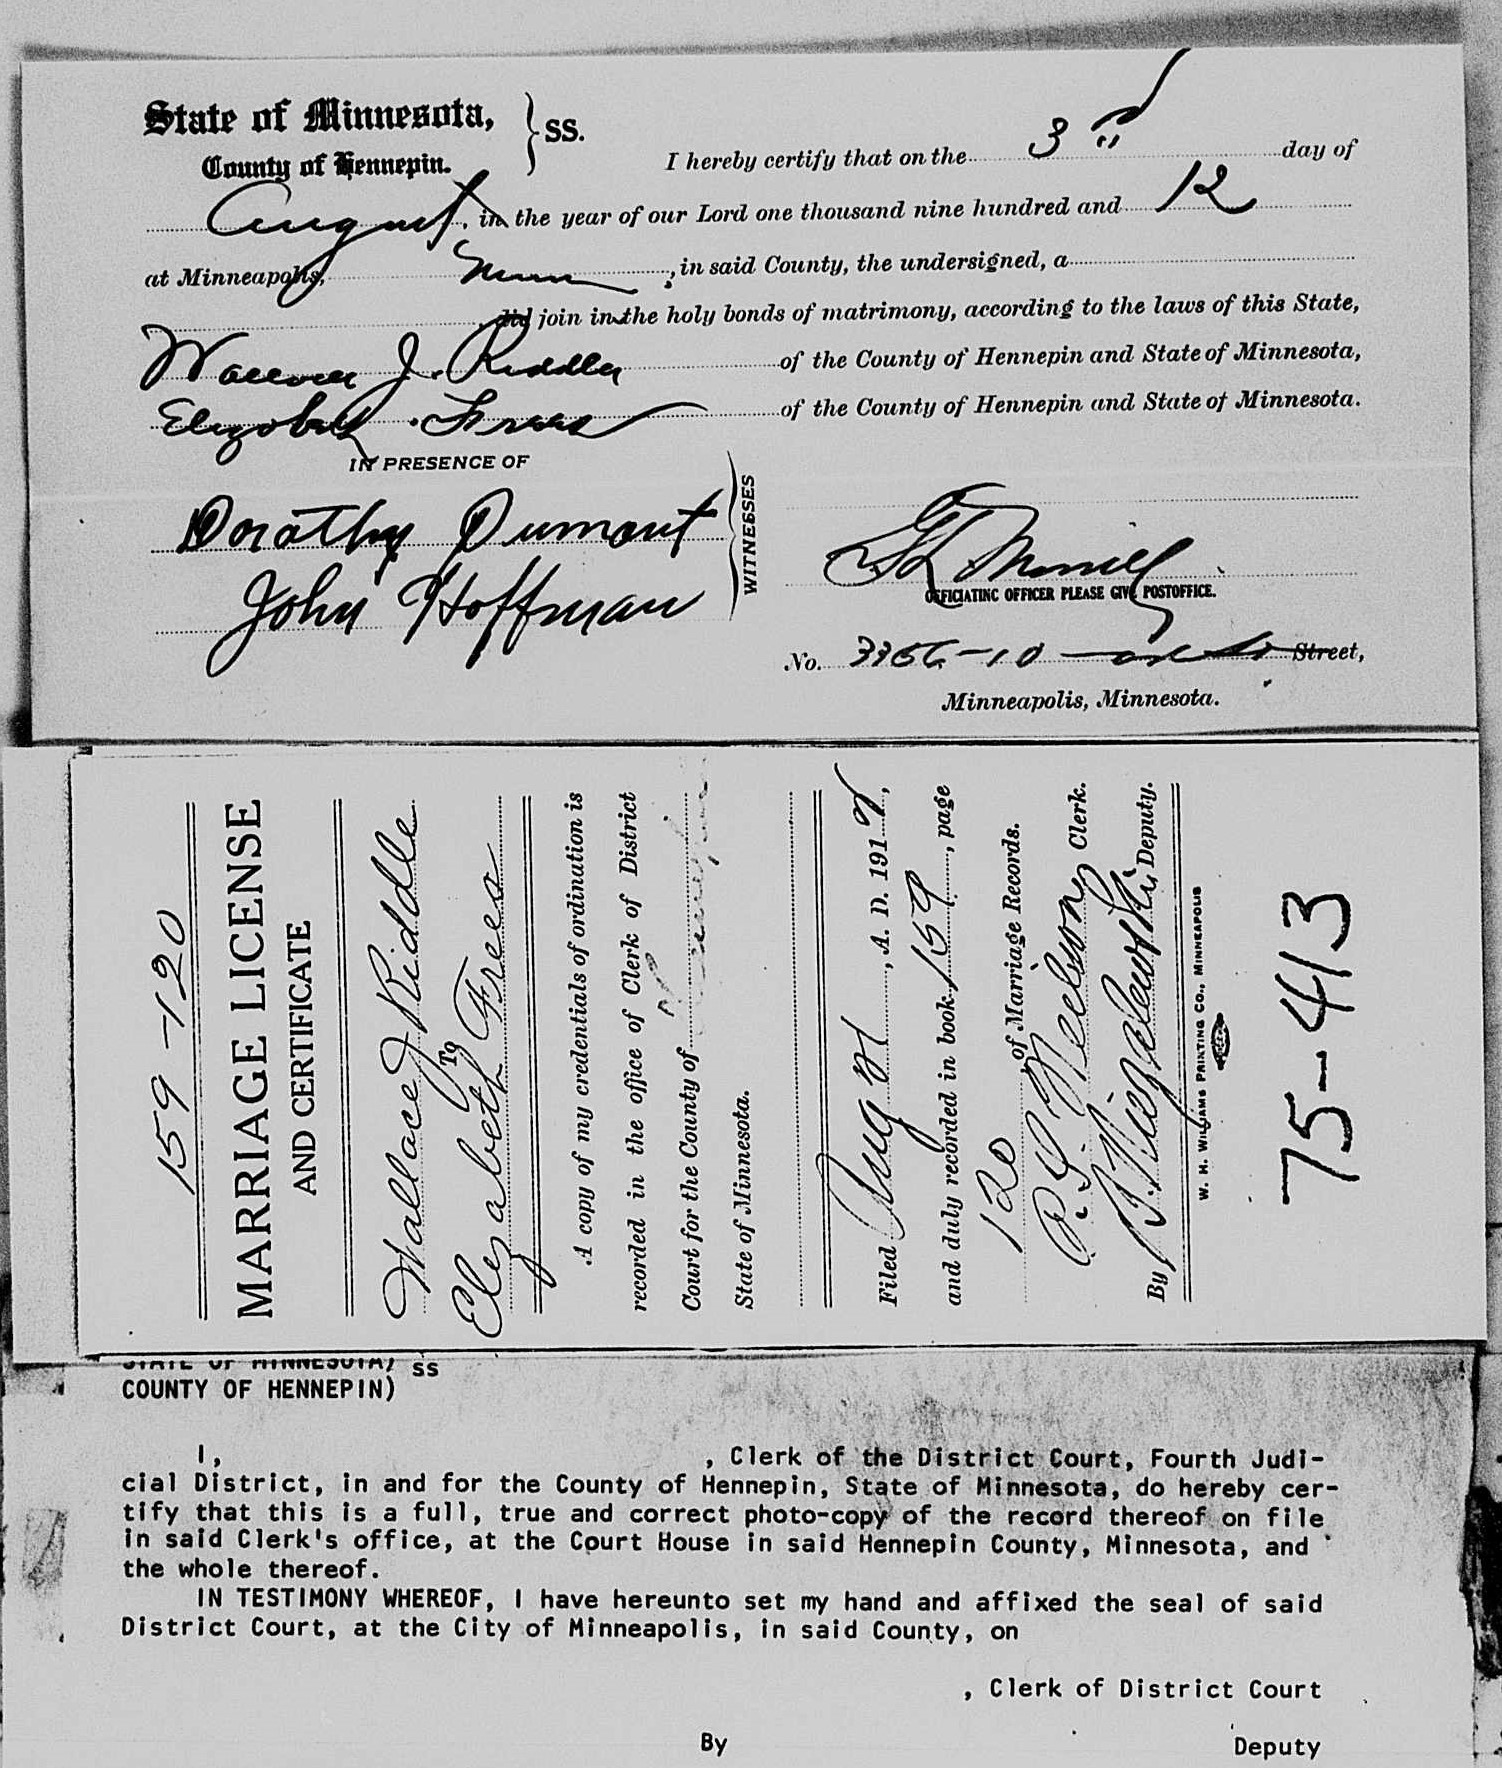 State of Minnesota,
County of Hennepin. } SS.
I hereby certify that on the 3rd day of
August, in the year of our Lord one thousand nine hundred and 12
at Minneapolis, Minn, in said County, the undersigned, a
did join in the holy bonds of matrimony, according to the laws of this State,
Wallace J. Riddle of the County of Hennepin and State of Minnesota,
Elizabeth Frees of the County of Hennepin and State of Minnesota.
IN PRESENCE OF
Dorothy Dumont
John Hoffman
WITNESSES
G L Morrill
OFFICIATING OFFICER PLEASE GIVE POSTOFFICE.
No. 3356-10 Street,
Minneapolis, Minnesota.
159-120
MARRIAGE LICENSE
AND CERTIFICATE
Wallace J Riddle
To
Elizabeth Frees
A copy of my credentials of ordination is
recorded in the office of Clerk of District
Court for the County of Hennepin
State of Minnesota.
Filed Aug, A. D. 1912,
and duly recorded in book 159, page
120 of Marriage Records.
P. S. Neilson, Clerk.
By Deputy.
W. H. WILLIAMS PRINTING CO., MINNEAPOLIS
75-413
STATE OF MINNESOTA) ss
COUNTY OF HENNEPIN)
I, , Clerk of the District Court, Fourth Judi-
cial District, in and for the County of Hennepin, State of Minnesota, do hereby cer-
tify that this is a full, true and correct photo-copy of the record thereof on file
in said Clerk's office, at the Court House in said Hennepin County, Minnesota, and
the whole thereof.
IN TESTIMONY WHEREOF, I have hereunto set my hand and affixed the seal of said
District Court, at the City of Minneapolis, in said County, on
, Clerk of District Court
By Deputy